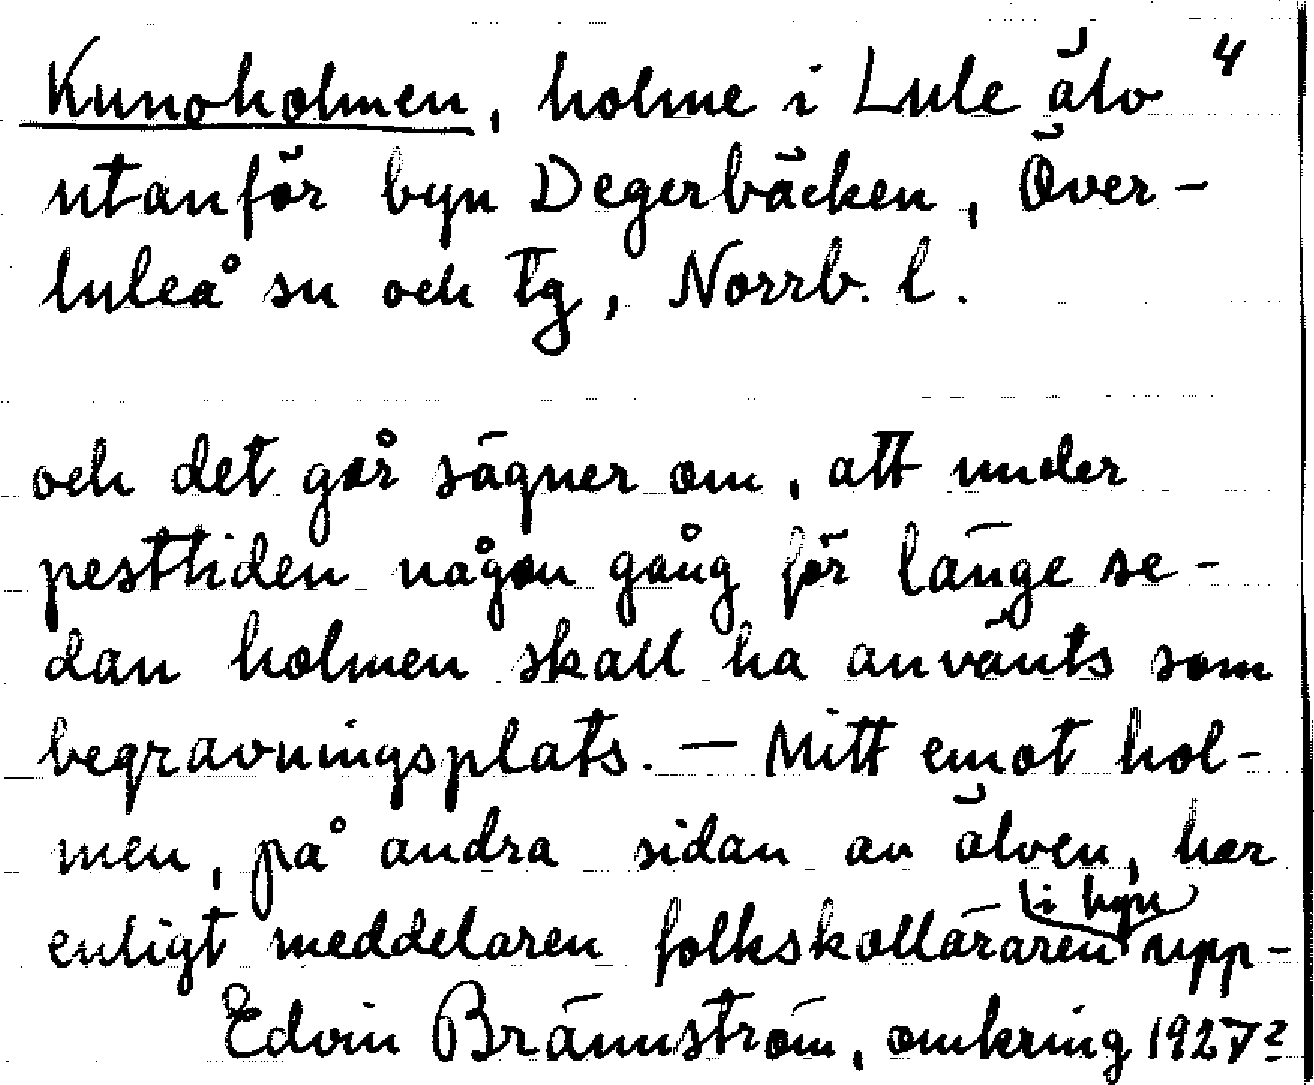 Kunoholmen, holme i Lule älv 4
utanför byn Degerbäcken, Över-
luleå sn och tg, Norrb. l.
och det går sägner om, att under
pesttiden någon gång för länge se-
dan holmen skall ha använts som
begravningsplats. — Mitt emot hol-
men, på andra sidan av älven, har
enligt meddelaren folkskolläraren i byn upp-
Edvin Brännström, omkring 1927?